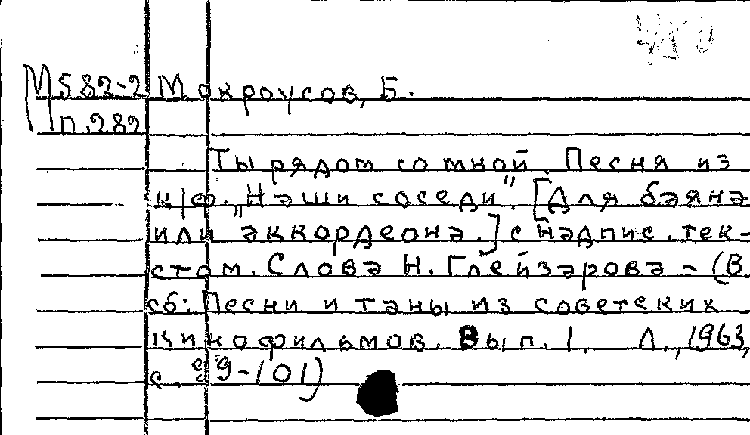 М582-2 Мокроусов, Б.
П.282
Ты рядом со мной. Песня из
к/ф. „Наши соседи". [Для баяна
или аккордеона.] с надпис. тек-
стом. Слова Н. Глейзарова - (В
сб: Песни и таны из советских
кинофильмов. Вып. 1. Л., 1963,
с. 99-101)